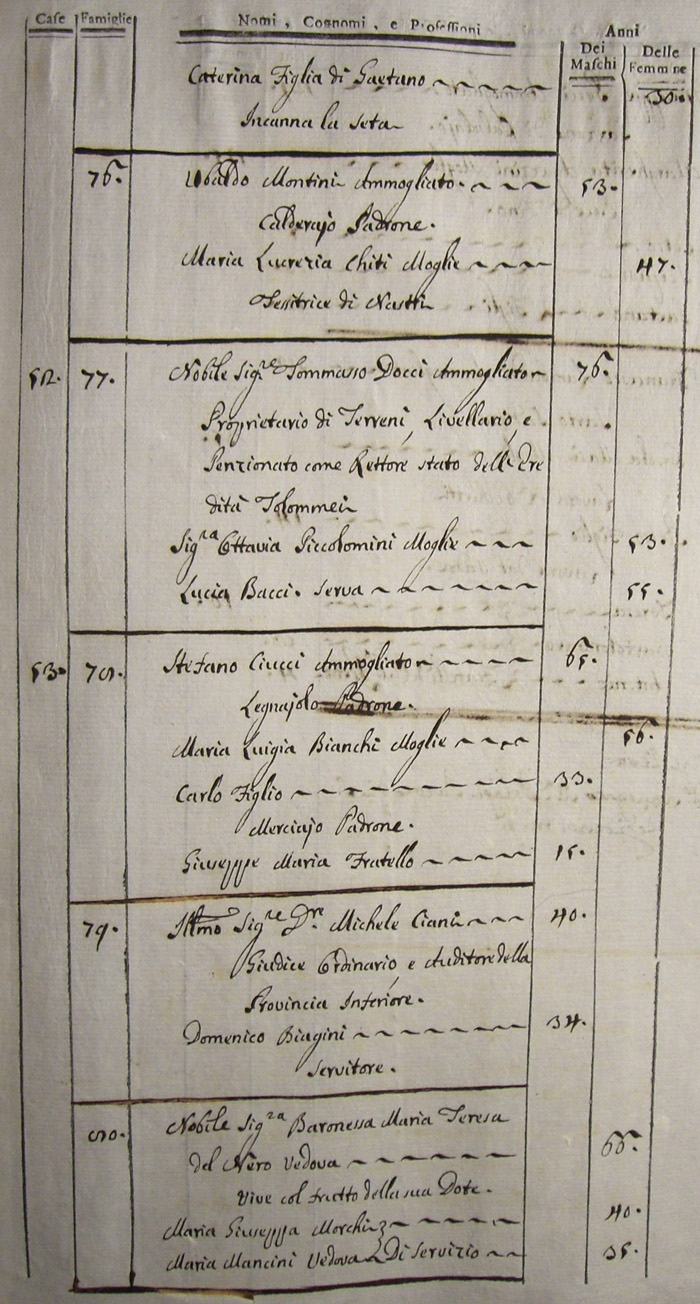 Case Famiglie Nomi, Cognomi, e Professioni Anni
Dei Maschi Delle Femmine
Caterina Figlia di Gaetano 30.
Incanna la seta
76. Ubaldo Montini Ammogliato. 53.
Calderajo Padrone.
Maria Lucrezia Chiti Moglie 47.
Tessitrice di Nastri
52. 77. Nobile Sig.re Tommaso Docci Ammogliato 76.
Proprietario di Terreni, Livellario, e
Penzionato come Rettore stato dell' Ere
dità Tolommei
Sig.ra Ottavia Piccolomini Moglie 53.
Lucia Bacci. Serva 55.
53. 78. Stefano Ciucci Ammogliato 65.
Legnajolo Padrone.
Maria Luigia Bianchi Moglie 56.
Carlo Figlio 33.
Merciajo Padrone.
Giuseppe Maria Fratello 15.
79. Illmo Sig.re Dr. Michele Ciani 40.
Giudice Ordinario, e Auditore della
Provincia Inferiore.
Domenico Biagini 34.
Servitore.
80. Nobile Sig.ra Baronessa Maria Teresa
del Nero Vedova 66.
Vive col frutto della sua Dote.
Maria Giuseppa 40.
Maria Mancini Vedova Di Servizio 35.